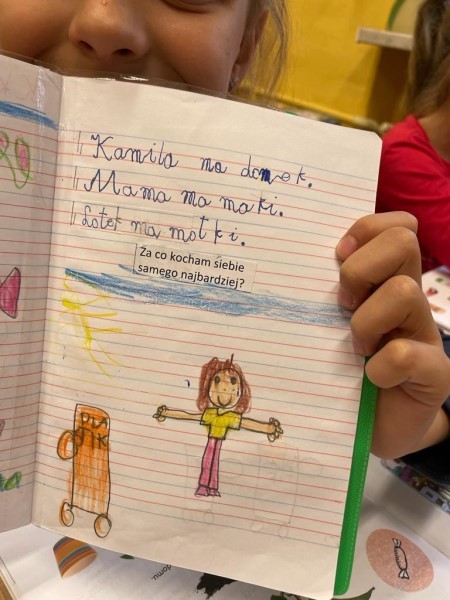 Kamila ma domek.
Mama ma maki.
Lotek ma motki.
Za co kocham siebie
samego najbardziej?
domu.